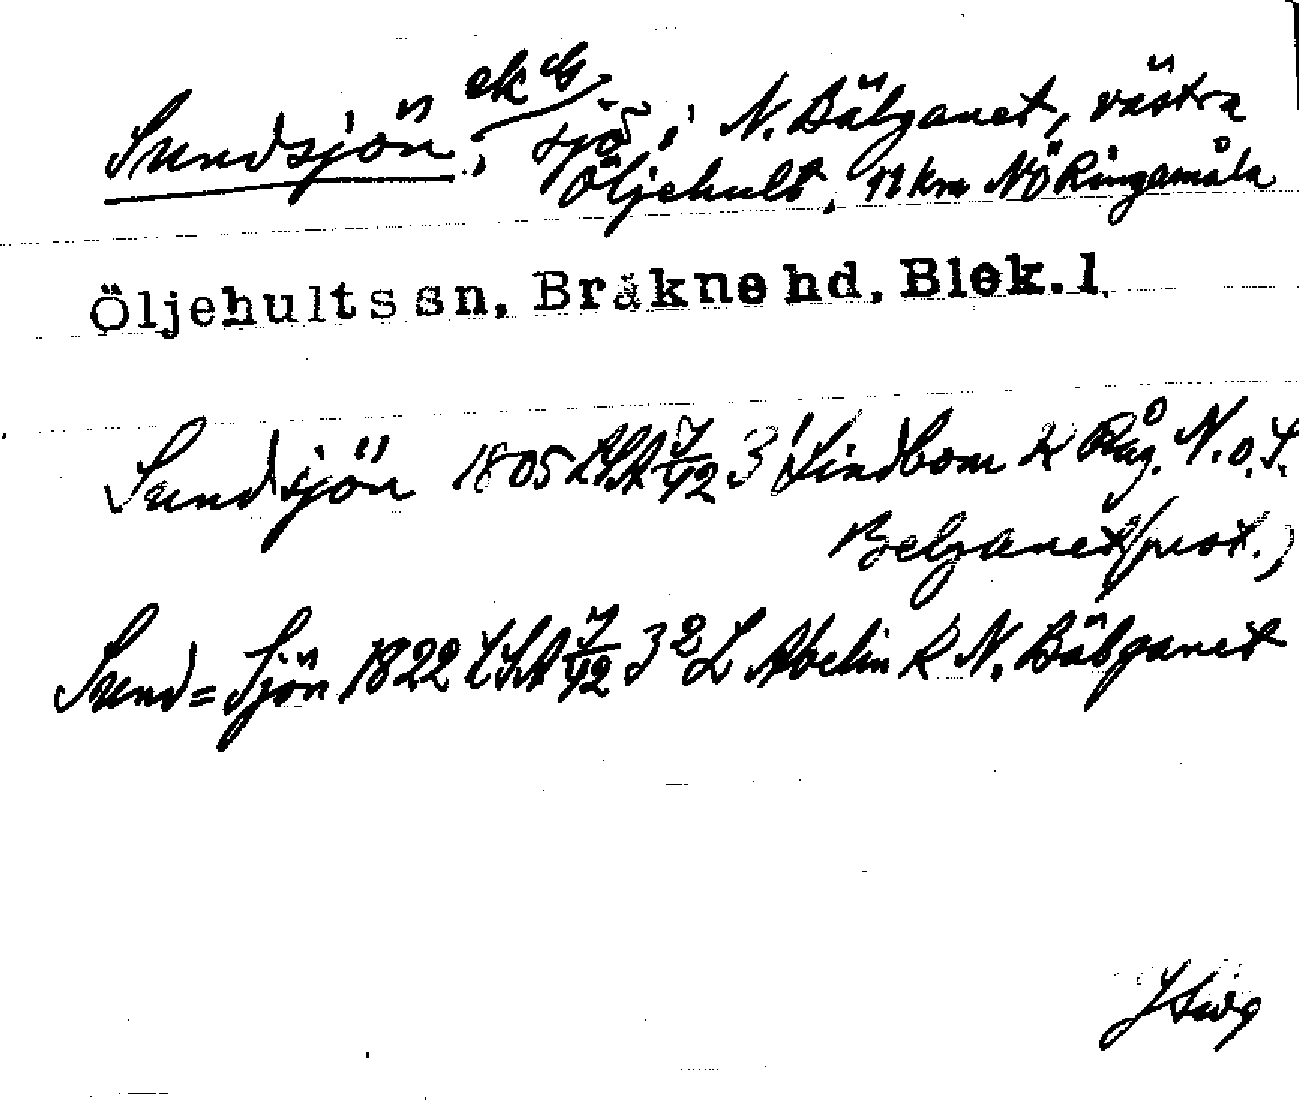 ek G
Sundsjön, sjö i N. Bälganet, västra
Öljehult, 11 km NÖ Ringamåla
Öljehults sn, Bräkne hd, Blek. l.
Sundsjön 1805 LSA 7/42 3¹ Lindbom K Råg. N. o. S.
Belganet (prot.)
Sund=Sjön 1822 LSA 7/42 3² L Abelin K N. Bälganet